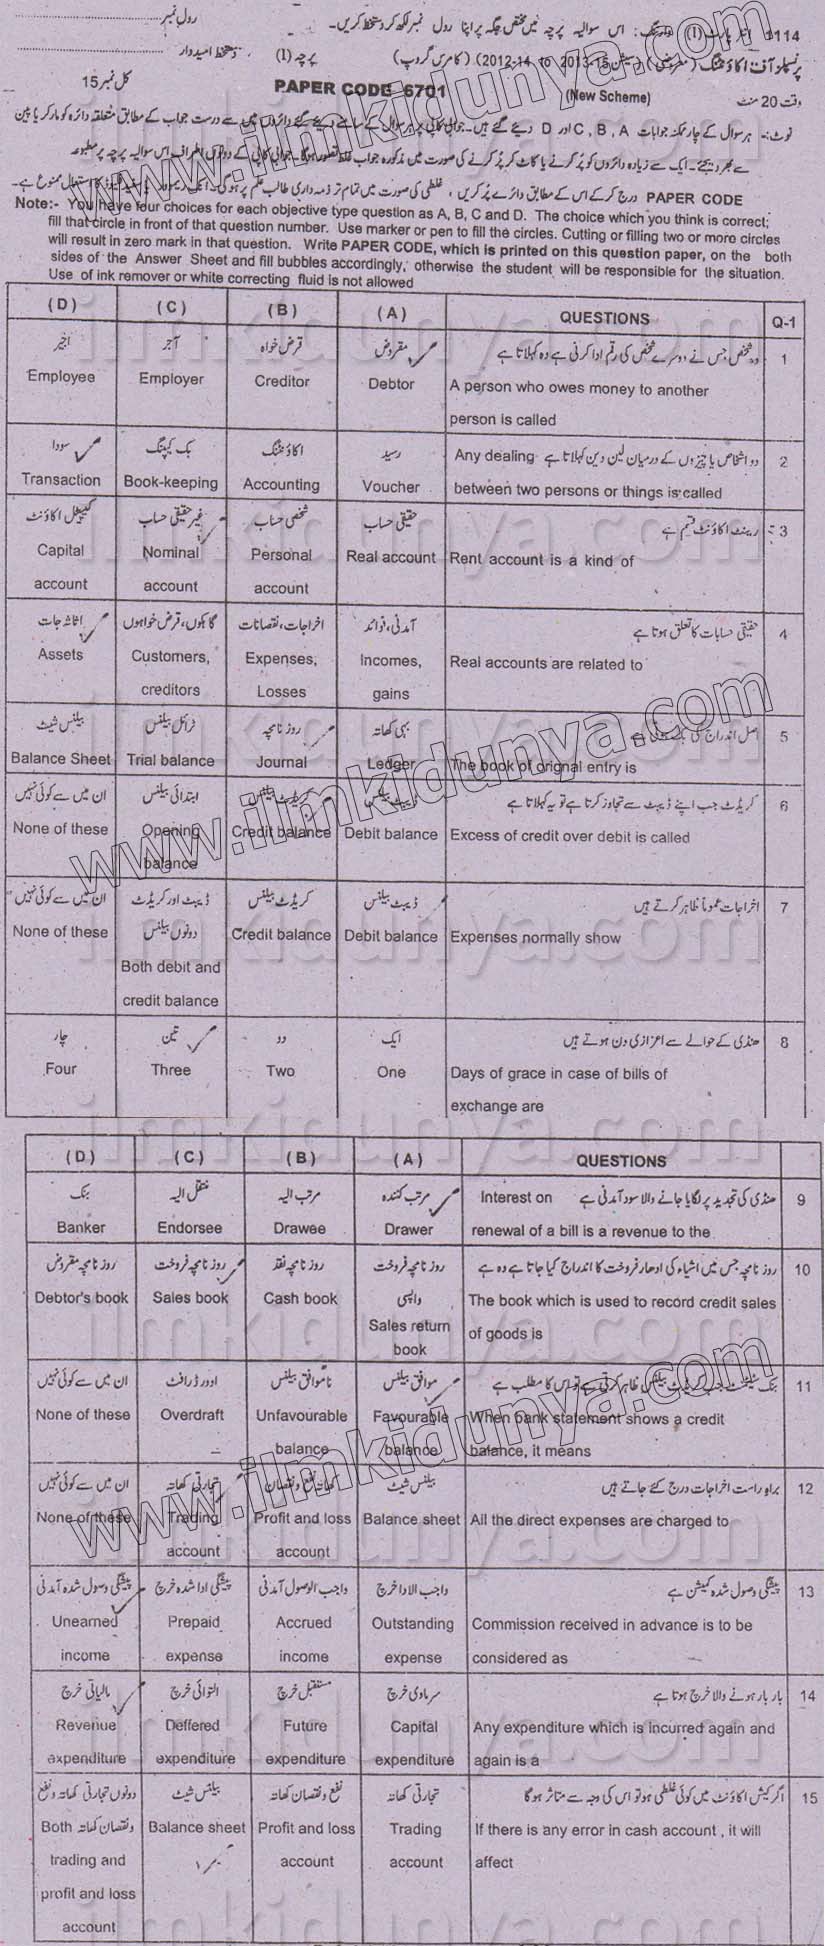 رول نمبر
1114 انٹر پارٹ (I) وارننگ: اس سوالیہ پرچہ میں مختص جگہ پر اپنا رول نمبر لکھ کر دستخط کریں۔
پرنسپلز آف اکاؤنٹنگ (معروضی) (سیشن 2013-15 to 2012-14) (کامرس گروپ) پرچہ (I) دستخط امیدوار
وقت 20 منٹ (New Scheme) PAPER CODE 6701 کل نمبر 15
نوٹ:- ہر سوال کے چار ممکنہ جوابات A , B , C اور D دیئے گئے ہیں۔ جوابی کاپی پر ہر سوال کے سامنے دیئے گئے دائروں میں سے درست جواب کے مطابق متعلقہ دائرہ کو مارکر یا پین
سے بھر دیجئے۔ ایک سے زیادہ دائروں کو پُر کرنے یا کاٹ کر پُر کرنے کی صورت میں مذکورہ جواب غلط تصور ہوگا۔ جوابی کاپی کے دونوں اطراف اس سوالیہ پرچہ پر مطبوعہ
PAPER CODE درج کر کے اس کے مطابق دائرے پُر کریں، غلطی کی صورت میں تمام تر ذمہ داری طالب علم پر ہوگی۔ انک ریموور یا سفید فلیوڈ کا استعمال ممنوع ہے۔
Note:- You have four choices for each objective type question as A, B, C and D. The choice which you think is correct;
fill that circle in front of that question number. Use marker or pen to fill the circles. Cutting or filling two or more circles
will result in zero mark in that question. Write PAPER CODE, which is printed on this question paper, on the both
sides of the Answer Sheet and fill bubbles accordingly, otherwise the student will be responsible for the situation.
Use of ink remover or white correcting fluid is not allowed
( D ) ( C ) ( B ) ( A ) QUESTIONS Q-1
اجیر آجر قرض خواہ مقروض وہ شخص جس نے دوسرے شخص کی رقم ادا کرنی ہے وہ کہلاتا ہے 1
Employee Employer Creditor Debtor A person who owes money to another
person is called
سودا بک کیپنگ اکاؤنٹنگ رسید دو اشخاص یا چیزوں کے درمیان لین دین کہلاتا ہے Any dealing 2
Transaction Book-keeping Accounting Voucher between two persons or things is called
کیپیٹل اکاؤنٹ غیر حقیقی حساب شخصی حساب حقیقی حساب رینٹ اکاؤنٹ قسم ہے 3
Capital Nominal Personal Real account Rent account is a kind of
account account account
اثاثہ جات گاہکوں، قرض خواہوں اخراجات، نقصانات آمدنی، فوائد حقیقی حسابات کا تعلق ہوتا ہے 4
Assets Customers, Expenses, Incomes, Real accounts are related to
creditors Losses gains
بیلنس شیٹ ٹرائل بیلنس روزنامچہ بہی کھاتہ اصل اندراج کی بک ہوتی ہے 5
Balance Sheet Trial balance Journal Ledger The book of orignal entry is
ان میں سے کوئی نہیں ابتدائی بیلنس کریڈٹ بیلنس ڈیبٹ بیلنس کریڈٹ جب اپنے ڈیبٹ سے تجاوز کرتا ہے تو یہ کہلاتا ہے 6
None of these Opening Credit balance Debit balance Excess of credit over debit is called
balance
ان میں سے کوئی نہیں ڈیبٹ اور کریڈٹ کریڈٹ بیلنس ڈیبٹ بیلنس اخراجات عموماً ظاہر کرتے ہیں 7
دونوں بیلنس
None of these Credit balance Debit balance Expenses normally show
Both debit and
credit balance
چار تین دو ایک ہنڈی کے حوالے سے اعزازی دن ہوتے ہیں 8
Four Three Two One Days of grace in case of bills of
exchange are
( D ) ( C ) ( B ) ( A ) QUESTIONS
بنک منتقل الیہ مرتب الیہ مرتب کنندہ ہنڈی کی تجدید پر لگایا جانے والا سود آمدنی ہے Interest on 9
Banker Endorsee Drawee Drawer renewal of a bill is a revenue to the
روزنامچہ مقروض روزنامچہ فروخت روزنامچہ نقد روزنامچہ فروخت روزنامچہ جس میں اشیاء کی ادھار فروخت کا اندراج کیا جاتا ہے وہ ہے 10
واپسی
Debtor's book Sales book Cash book The book which is used to record credit sales
Sales return of goods is
book
ان میں سے کوئی نہیں اوورڈرافٹ ناموافق بیلنس موافق بیلنس بنک سٹیٹمنٹ جب کریڈٹ بیلنس ظاہر کرتی ہے تو اس کا مطلب ہے 11
None of these Overdraft Unfavourable Favourable When bank statement shows a credit
balance balance balance, it means
ان میں سے کوئی نہیں تجارتی کھاتہ کھاتہ نفع و نقصان بیلنس شیٹ براہِ راست اخراجات درج کئے جاتے ہیں 12
None of these Trading Profit and loss Balance sheet All the direct expenses are charged to
account account
پیشگی وصول شدہ آمدنی پیشگی ادا شدہ خرچ واجب الوصول آمدنی واجب الادا خرچ پیشگی وصول شدہ کمیشن ہے 13
Unearned Prepaid Accrued Outstanding Commission received in advance is to be
income expense income expense considered as
مالیاتی خرچ التوائی خرچ مستقبل خرچ سرمادی خرچ بار بار ہونے والا خرچ ہوتا ہے 14
Revenue Deffered Future Capital Any expenditure which is incurred again and
expenditure expenditure expenditure expenditure again is a
دونوں تجارتی کھاتہ و نفع بیلنس شیٹ نفع و نقصان کھاتہ تجارتی کھاتہ اگر کیش اکاؤنٹ میں کوئی غلطی ہو تو اس کی وجہ سے متاثر ہوگا 15
و نقصان کھاتہ Both Balance sheet Profit and loss Trading If there is any error in cash account , it will
trading and account account affect
profit and loss
account
www.ilmkidunya.com
www.ilmkidunya.com
www.ilmkidunya.com
ilmkidunya.com